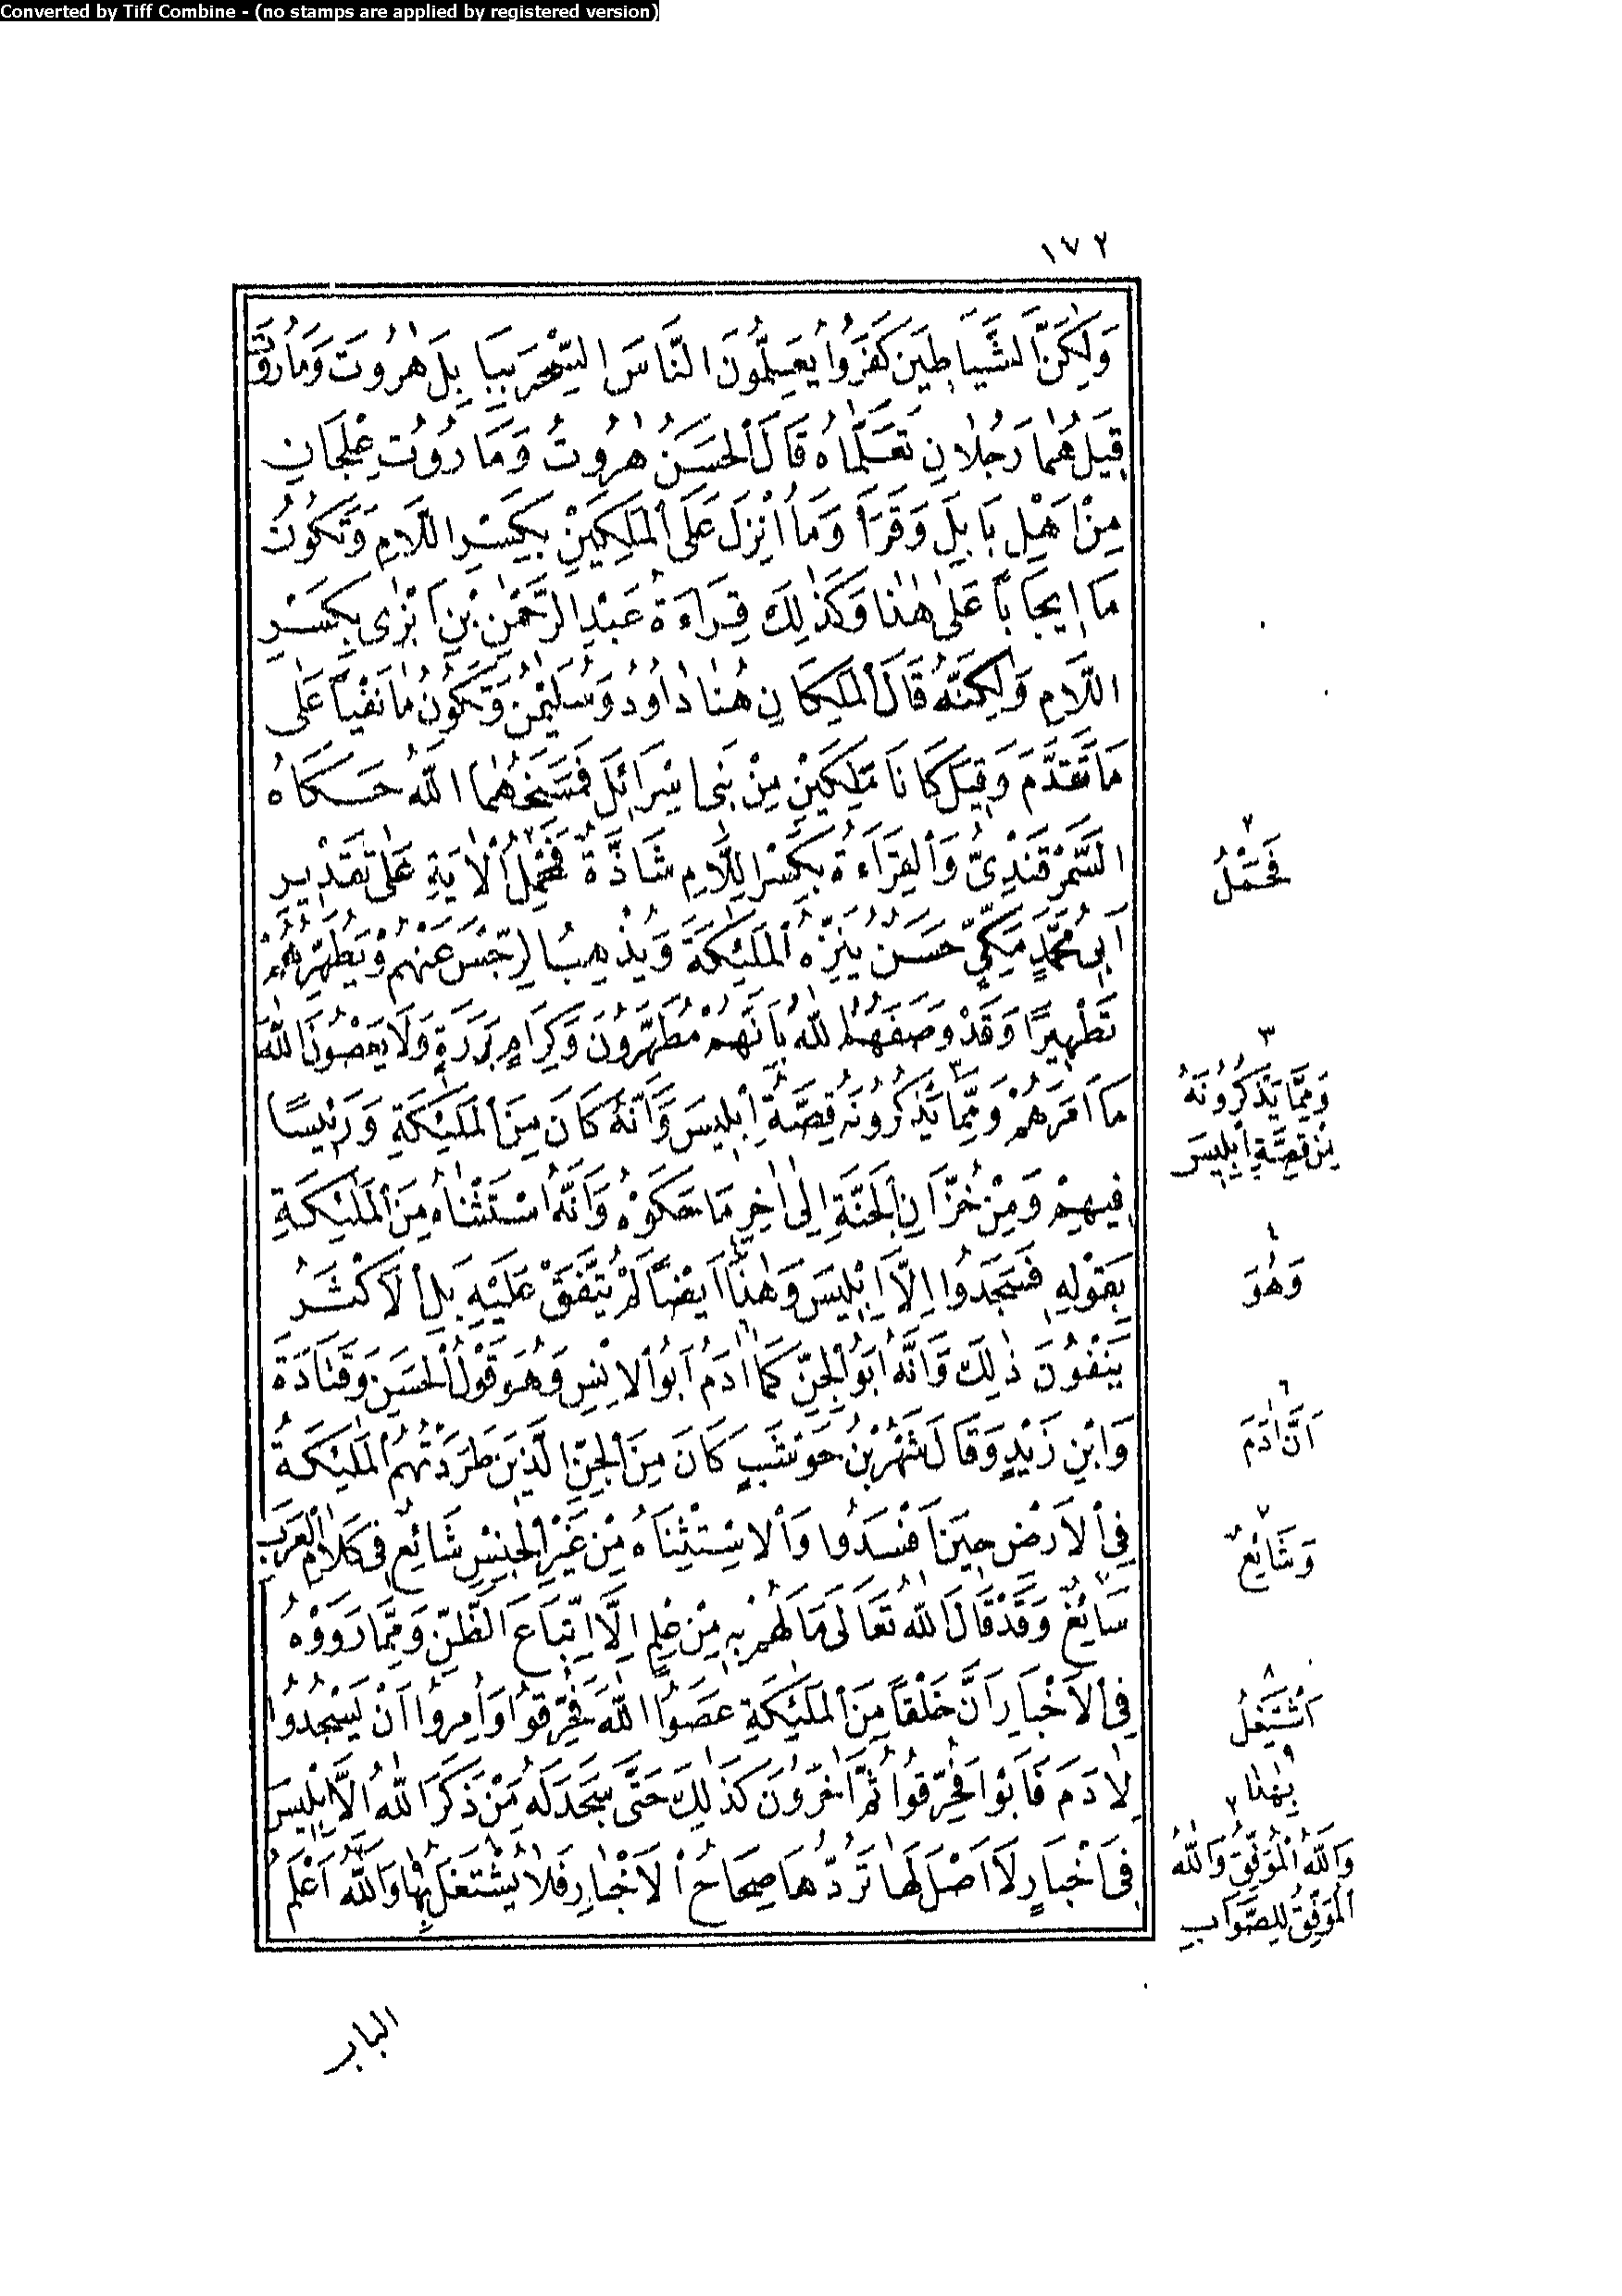 Converted by Tiff Combine - (no stamps are applied by registered version)
١٧٢
وَلٰكِنَّ الشَّيَاطِينَ كَفَرُوا يُعَلِّمُونَ النَّاسَ السِّحْرَ بِبَابِلَ هٰرُوتَ وَمَارُوتَ
قِيلَ هُمَا رَجُلَانِ تَعَلَّمَاهُ قَالَ الْحَسَنُ هٰرُوتُ وَمَارُوتُ عِلْجَانِ
مِنْ اَهْلِ بَابِلَ وَقَرَأَ وَمَا اُنْزِلَ عَلَى الْمَلِكَيْنِ بِكَسْرِ اللَّامِ وَتَكُونُ
مَا اِيجَابًا عَلٰى هٰذَا وَكَذٰلِكَ قِرَاءَةُ عَبْدِ الرَّحْمٰنِ بْنِ اَبْزٰى بِكَسْرِ
اللَّامِ وَلٰكِنَّهُ قَالَ الْمَلِكَانِ هُنَا دَاوُدُ وَسُلَيْمٰنُ وَتَكُونُ مَا نَفْيًا عَلٰى
مَا تَقَدَّمَ وَقِيلَ كَانَا مَلِكَيْنِ مِنْ بَنِى اِسْرَائِلَ فَمَسَخَهُمَا اللّٰهُ حَكَاهُ
السَّمَرْقَنْدِىُّ وَالْقِرَاءَةُ بِكَسْرِ اللَّامِ شَاذَّةٌ فَحَمْلُ الْاٰيَةِ عَلٰى تَقْدِيرِ
اَبِى مُحَمَّدٍ مَكِّيٍّ حَسَنٌ يُنَزِّهُ الْمَلٰئِكَةَ وَيُذْهِبُ الرِّجْسَ عَنْهُمْ وَيُطَهِّرُهُمْ
تَطْهِيرًا وَقَدْ وَصَفَهُمُ اللّٰهُ بِاَنَّهُمْ مُطَهَّرُونَ وَكِرَامٍ بَرَرَةٍ وَلَا يَعْصُونَ اللّٰهَ
مَا اَمَرَهُمْ وَمِمَّا يَذْكُرُونَهُ قِصَّةُ اِبْلِيسَ وَاَنَّهُ كَانَ مِنَ الْمَلٰئِكَةِ وَرَئِيسًا
فِيهِمْ وَمِنْ خُزَّانِ الْجَنَّةِ اِلٰى اٰخِرِ مَا حَكَوْهُ وَاَنَّهُ اسْتَثْنَاهُ مِنَ الْمَلٰئِكَةِ
بِقَوْلِهِ فَسَجَدُوا اِلَّا اِبْلِيسَ وَهٰذَا اَيْضًا لَمْ يُتَّفَقْ عَلَيْهِ بَلِ الْاَكْثَرُ
يَنْفُونَ ذٰلِكَ وَاَنَّهُ اَبُو الْجِنِّ كَمَا اٰدَمُ اَبُو الْاِنْسِ وَهُوَ قَوْلُ الْحَسَنِ وَقَتَادَةَ
وَابْنِ زَيْدٍ وَقَالَ شَهْرُ بْنُ حَوْشَبٍ كَانَ مِنَ الْجِنِّ الَّذِينَ طَرَدَتْهُمُ الْمَلٰئِكَةُ
فِى الْاَرْضِ حِينَ اَفْسَدُوا وَالْاِسْتِثْنَاءُ مِنْ غَيْرِ الْجِنْسِ شَائِعٌ فِى كَلَامِ الْعَرَبِ
سَائِغٌ وَقَدْ قَالَ اللّٰهُ تَعَالَى مَا لَهُمْ بِهِ مِنْ عِلْمٍ اِلَّا اتِّبَاعَ الظَّنِّ وَمِمَّا رَوَوْهُ
فِى الْاَخْبَارِ اَنَّ خَلْقًا مِنَ الْمَلٰئِكَةِ عَصَوُا اللّٰهَ فَحُرِّقُوا وَاُمِرُوا اَنْ يَسْجُدُوا
لِاٰدَمَ فَاَبَوْا فَحُرِّقُوا ثُمَّ اٰخَرُونَ كَذٰلِكَ حَتَّى سَجَدَ لَهُ مَنْ ذَكَرَ اللّٰهُ اِلَّا اِبْلِيسَ
فِى اَخْبَارٍ لَا اَصْلَ لَهَا تَرُدُّهَا صِحَاحُ الْاَخْبَارِ فَلَا يُشْتَغَلُ بِهَا وَاللّٰهُ اَعْلَمُ
٢
فَحَمْلُ
٣
وَمِمَّا يَذْكُرُونَهُ
مِنْ قِصَّةِ اِبْلِيسَ
٤
وَهُوَ
٦
اَنَّ اٰدَمَ
٧
وَشَائِعٌ
٨
اَشْتَغِلُ
٩
بِهٰذَا
٢
وَاللّٰهُ الْمُوَفِّقُ وَاللّٰهُ
الْمُوَفِّقُ لِلصَّوَابِ
الباب